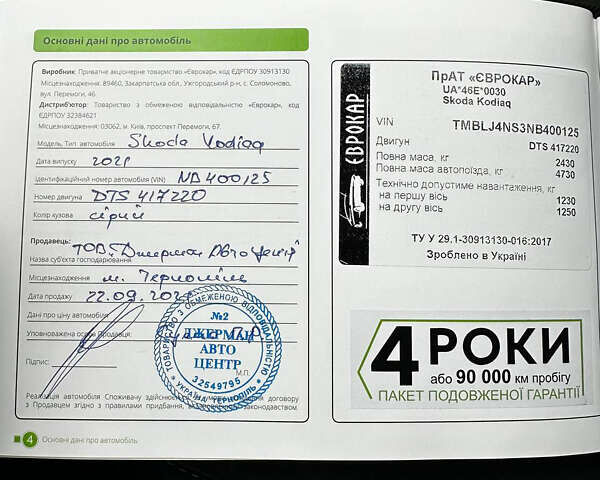 Основні дані про автомобіль
Виробник: Приватне акціонерне товариство «Єврокар», код ЄДРПОУ 30913130
Місцезнаходження: 89460, Закарпатська обл., Ужгородський р-н, с. Соломоново,
вул. Перемоги, 46.
Дистриб'ютор: Товариство з обмеженою відповідальністю «Єврокар», код
ЄДРПОУ 32384621
Місцезнаходження: 03062, м. Київ, проспект Перемоги, 67.
Модель, Тип автомобіля Skoda Kodiaq
Дата випуску 2021
Ідентифікаційний номер автомобіля (VIN) NB400125
Номер двигуна DTS 417220
Колір кузова сірий
Продавець: ТОВ „Джерман Автоцентр"
Назва суб'єкта господарювання
Місцезнаходження м. Тернопіль
Дата продажу 22.09.202
Дані про ціну автомобіля
Уповноважена особа Продавця:
Підпис:
М.П.
Реалізація автомобіля Споживачу здійснюється договору
з Продавцем згідно з правилами придбання, законодавством
ТОВАРИСТВО З ОБМЕЖЕНОЮ ВІДПОВІДАЛЬНІСТЮ
№2
ДЖЕРМАН
АВТО
ЦЕНТР
32549795
* УКРАЇНА, ТЕРНОПІЛЬ *
4 Основні дані про автомобіль
ЄВРОКАР
ПрАТ «ЄВРОКАР»
UA*46E*0030
Skoda Kodiaq
VIN TMBLJ4NS3NB400125
Двигун DTS 417220
Повна маса, кг 2430
Повна маса автопоїзда, кг 4730
Технічно допустиме навантаження, кг
на першу вісь 1230
на другу вісь 1250
ТУ У 29.1-30913130-016:2017
Зроблено в Україні
4 РОКИ
або 90 000 км пробігу
ПАКЕТ ПОДОВЖЕНОЇ ГАРАНТІЇ